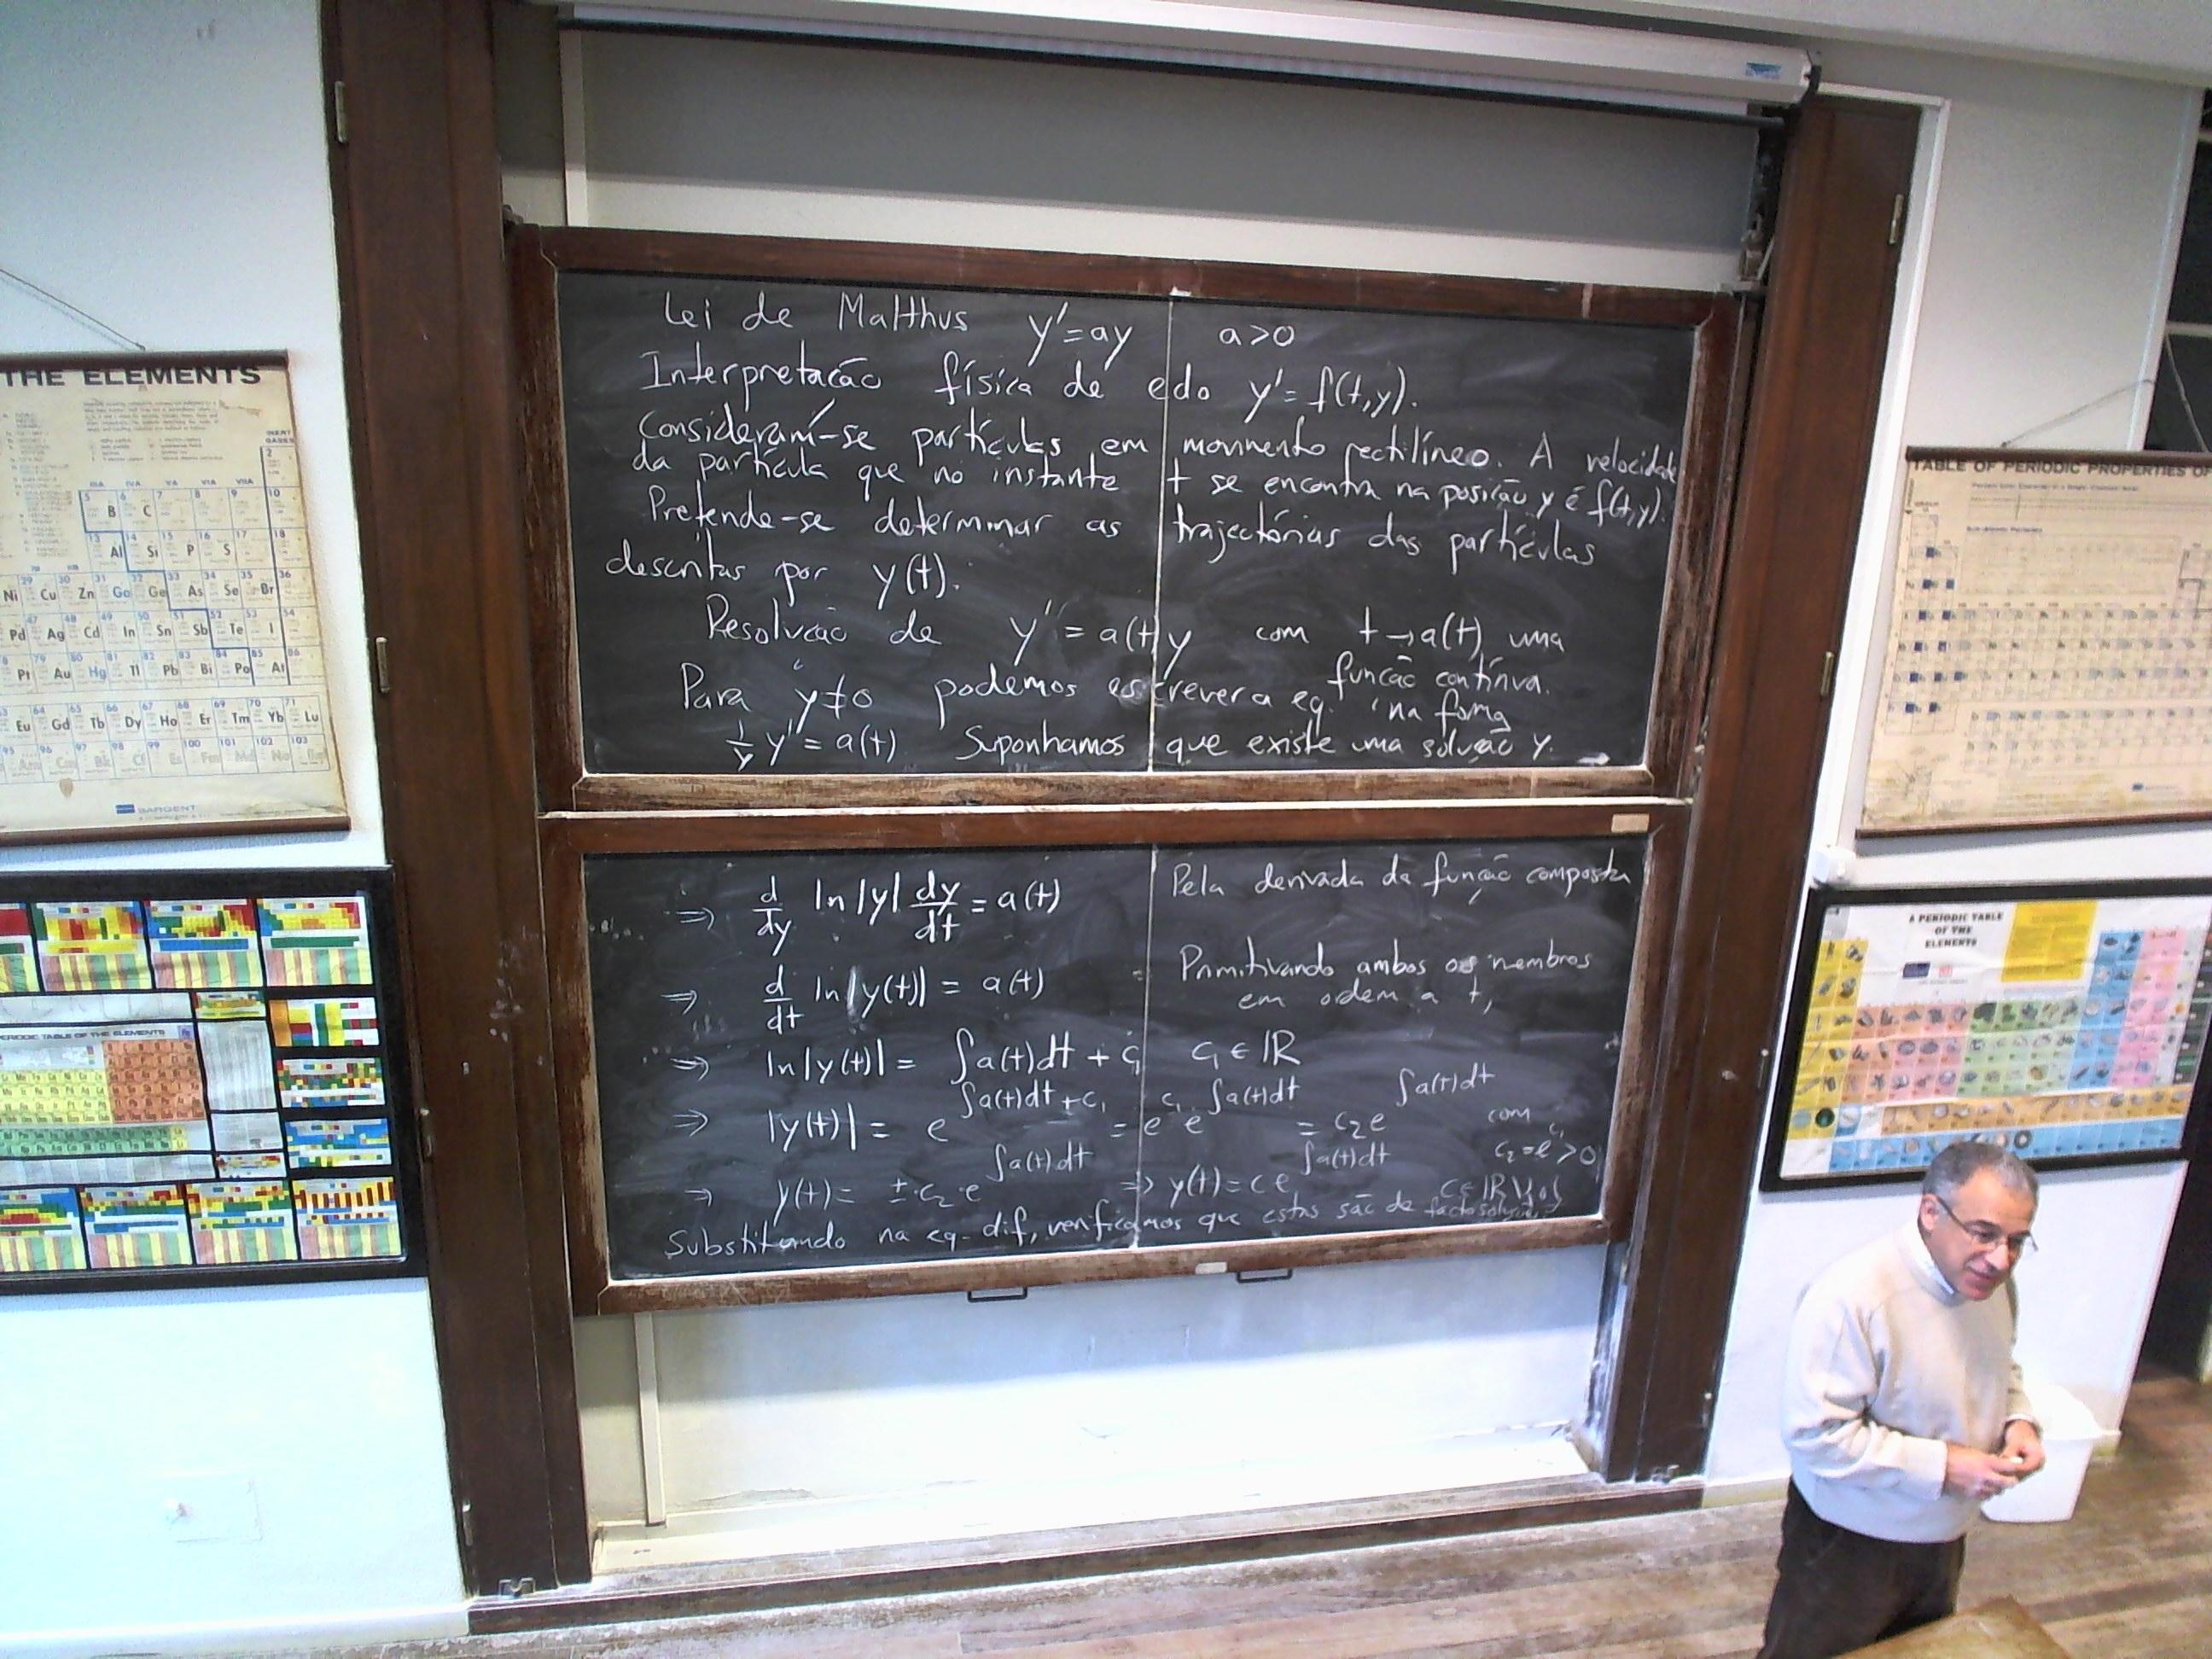 Lei de Malthus y' = ay a>0
Interpretação física de edo y' = f(t,y).
Consideram-se partículas em movimento rectilíneo. A velocidade
da partícula que no instante t se encontra na posição y é f(t,y).
Pretende-se determinar as trajectórias das partículas
descritas por y(t).
Resolução de y' = a(t)y com t→a(t) uma
função contínua.
Para y≠0 podemos escrever a eq. na forma
1/y y' = a(t) Suponhamos que existe uma solução y.
⇒ d/dy ln|y| dy/dt = a(t) Pela derivada da função composta
⇒ d/dt ln|y(t)| = a(t) Primitivando ambos os membros
em ordem a t,
⇒ ln|y(t)| = ∫a(t)dt + c₁ c₁ ∈ IR
⇒ |y(t)| = e^(∫a(t)dt + c₁) = e^c₁ e^(∫a(t)dt) = c₂e^(∫a(t)dt) com c₂=e^c₁ >0
⇒ y(t) = ± c₂·e^(∫a(t)dt) ⇒ y(t) = ce^(∫a(t)dt) c∈IR\{0}
Substituindo na eq. dif, verificamos que estas são de facto soluções
THE ELEMENTS
INERT GASES
IIIA IVA VA VIA VIIA
B C
Al Si P S
Ni Cu Zn Ga Ge As Se Br
Pd Ag Cd In Sn Sb Te I
Pt Au Hg Tl Pb Bi Po At
Eu Gd Tb Dy Ho Er Tm Yb Lu
SARGENT
TABLE OF PERIODIC PROPERTIES OF
PERIODIC TABLE OF THE ELEMENTS
A PERIODIC TABLE
OF THE
ELEMENTS